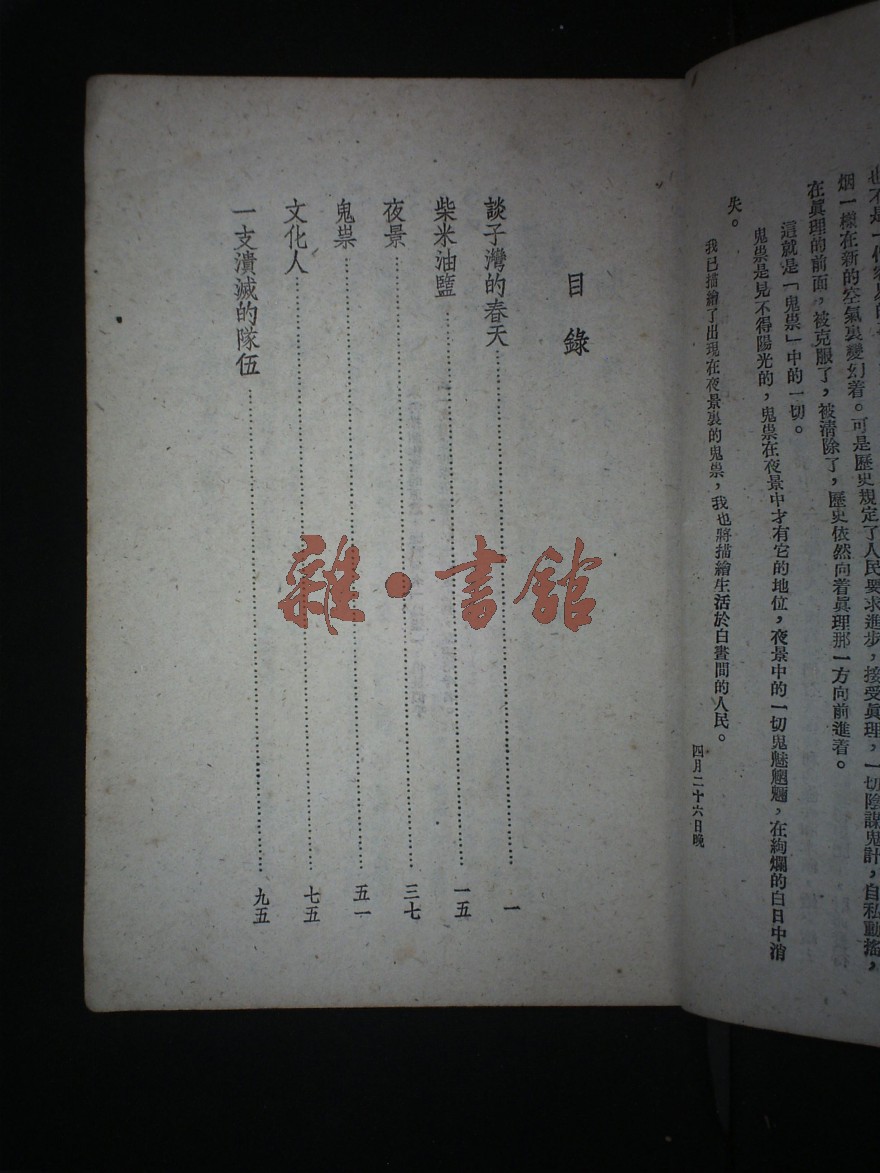 烟一樣在新的空氣裏變幻着。可是歷史規定了人民要求進步，接受眞理，一切陰謀鬼計，自私動搖，
在眞理的前面，被克服了，被清除了，歷史依然向着眞理那一方向前進着。
這就是「鬼祟」中的一切。
鬼祟是見不得陽光的，鬼祟在夜景中才有它的地位，夜景中的一切鬼魅魍魎，在絢爛的白日中消
失。
我已描繪了出現在夜景裏的鬼祟，我也將描繪生活於白晝間的人民。
四月二十六日晚
目錄
談子灣的春天……一
柴米油鹽……一五
夜景……三七
鬼祟……五一
文化人……七五
一支潰滅的隊伍……九五
雜·書舘